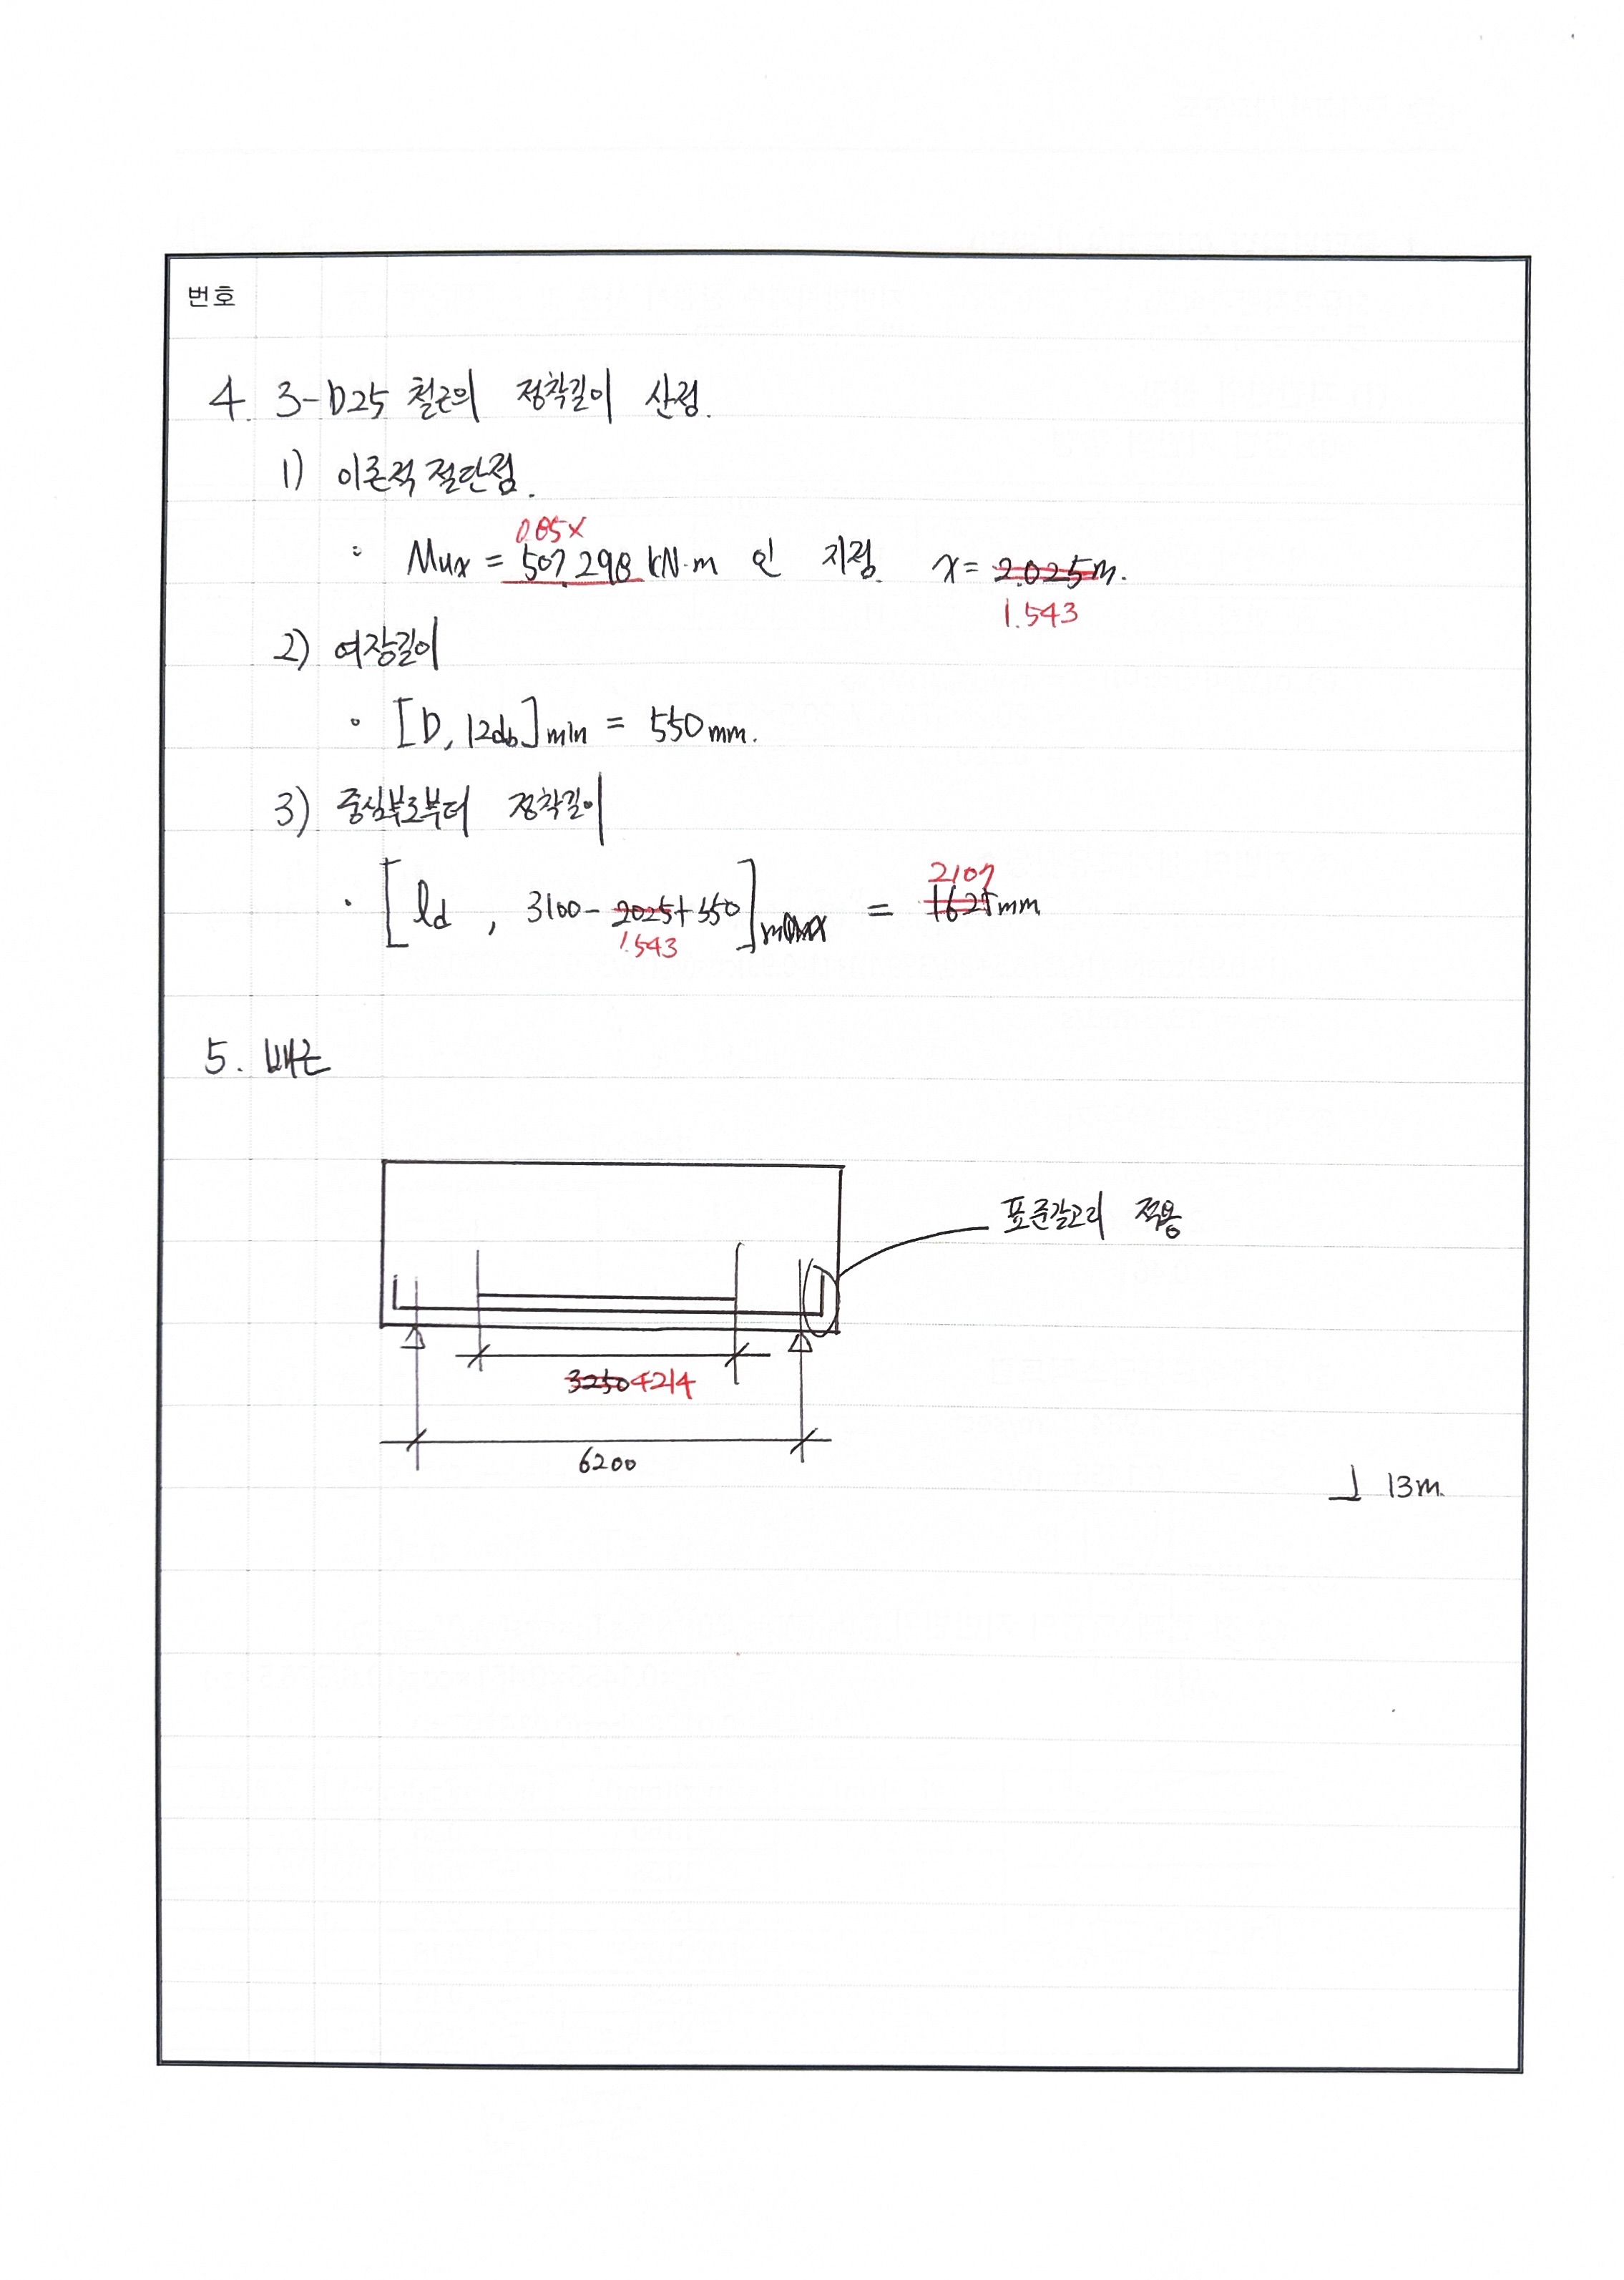 번호
4. 3-D25 철근의 정착길이 산정.
1) 이론적 절단점.
0.85×
: Mux = 507.298 kN·m 인 지점. x = 2.025m.
1.543
2) 여장길이
· [D, 12db]min = 550mm.
3) 중심부로부터 정착길이
2107
· [ld, 3100-2025+550]max = 1625mm
1.543
5. 배근
표준갈고리 적용
3250 4214
6200
13m.